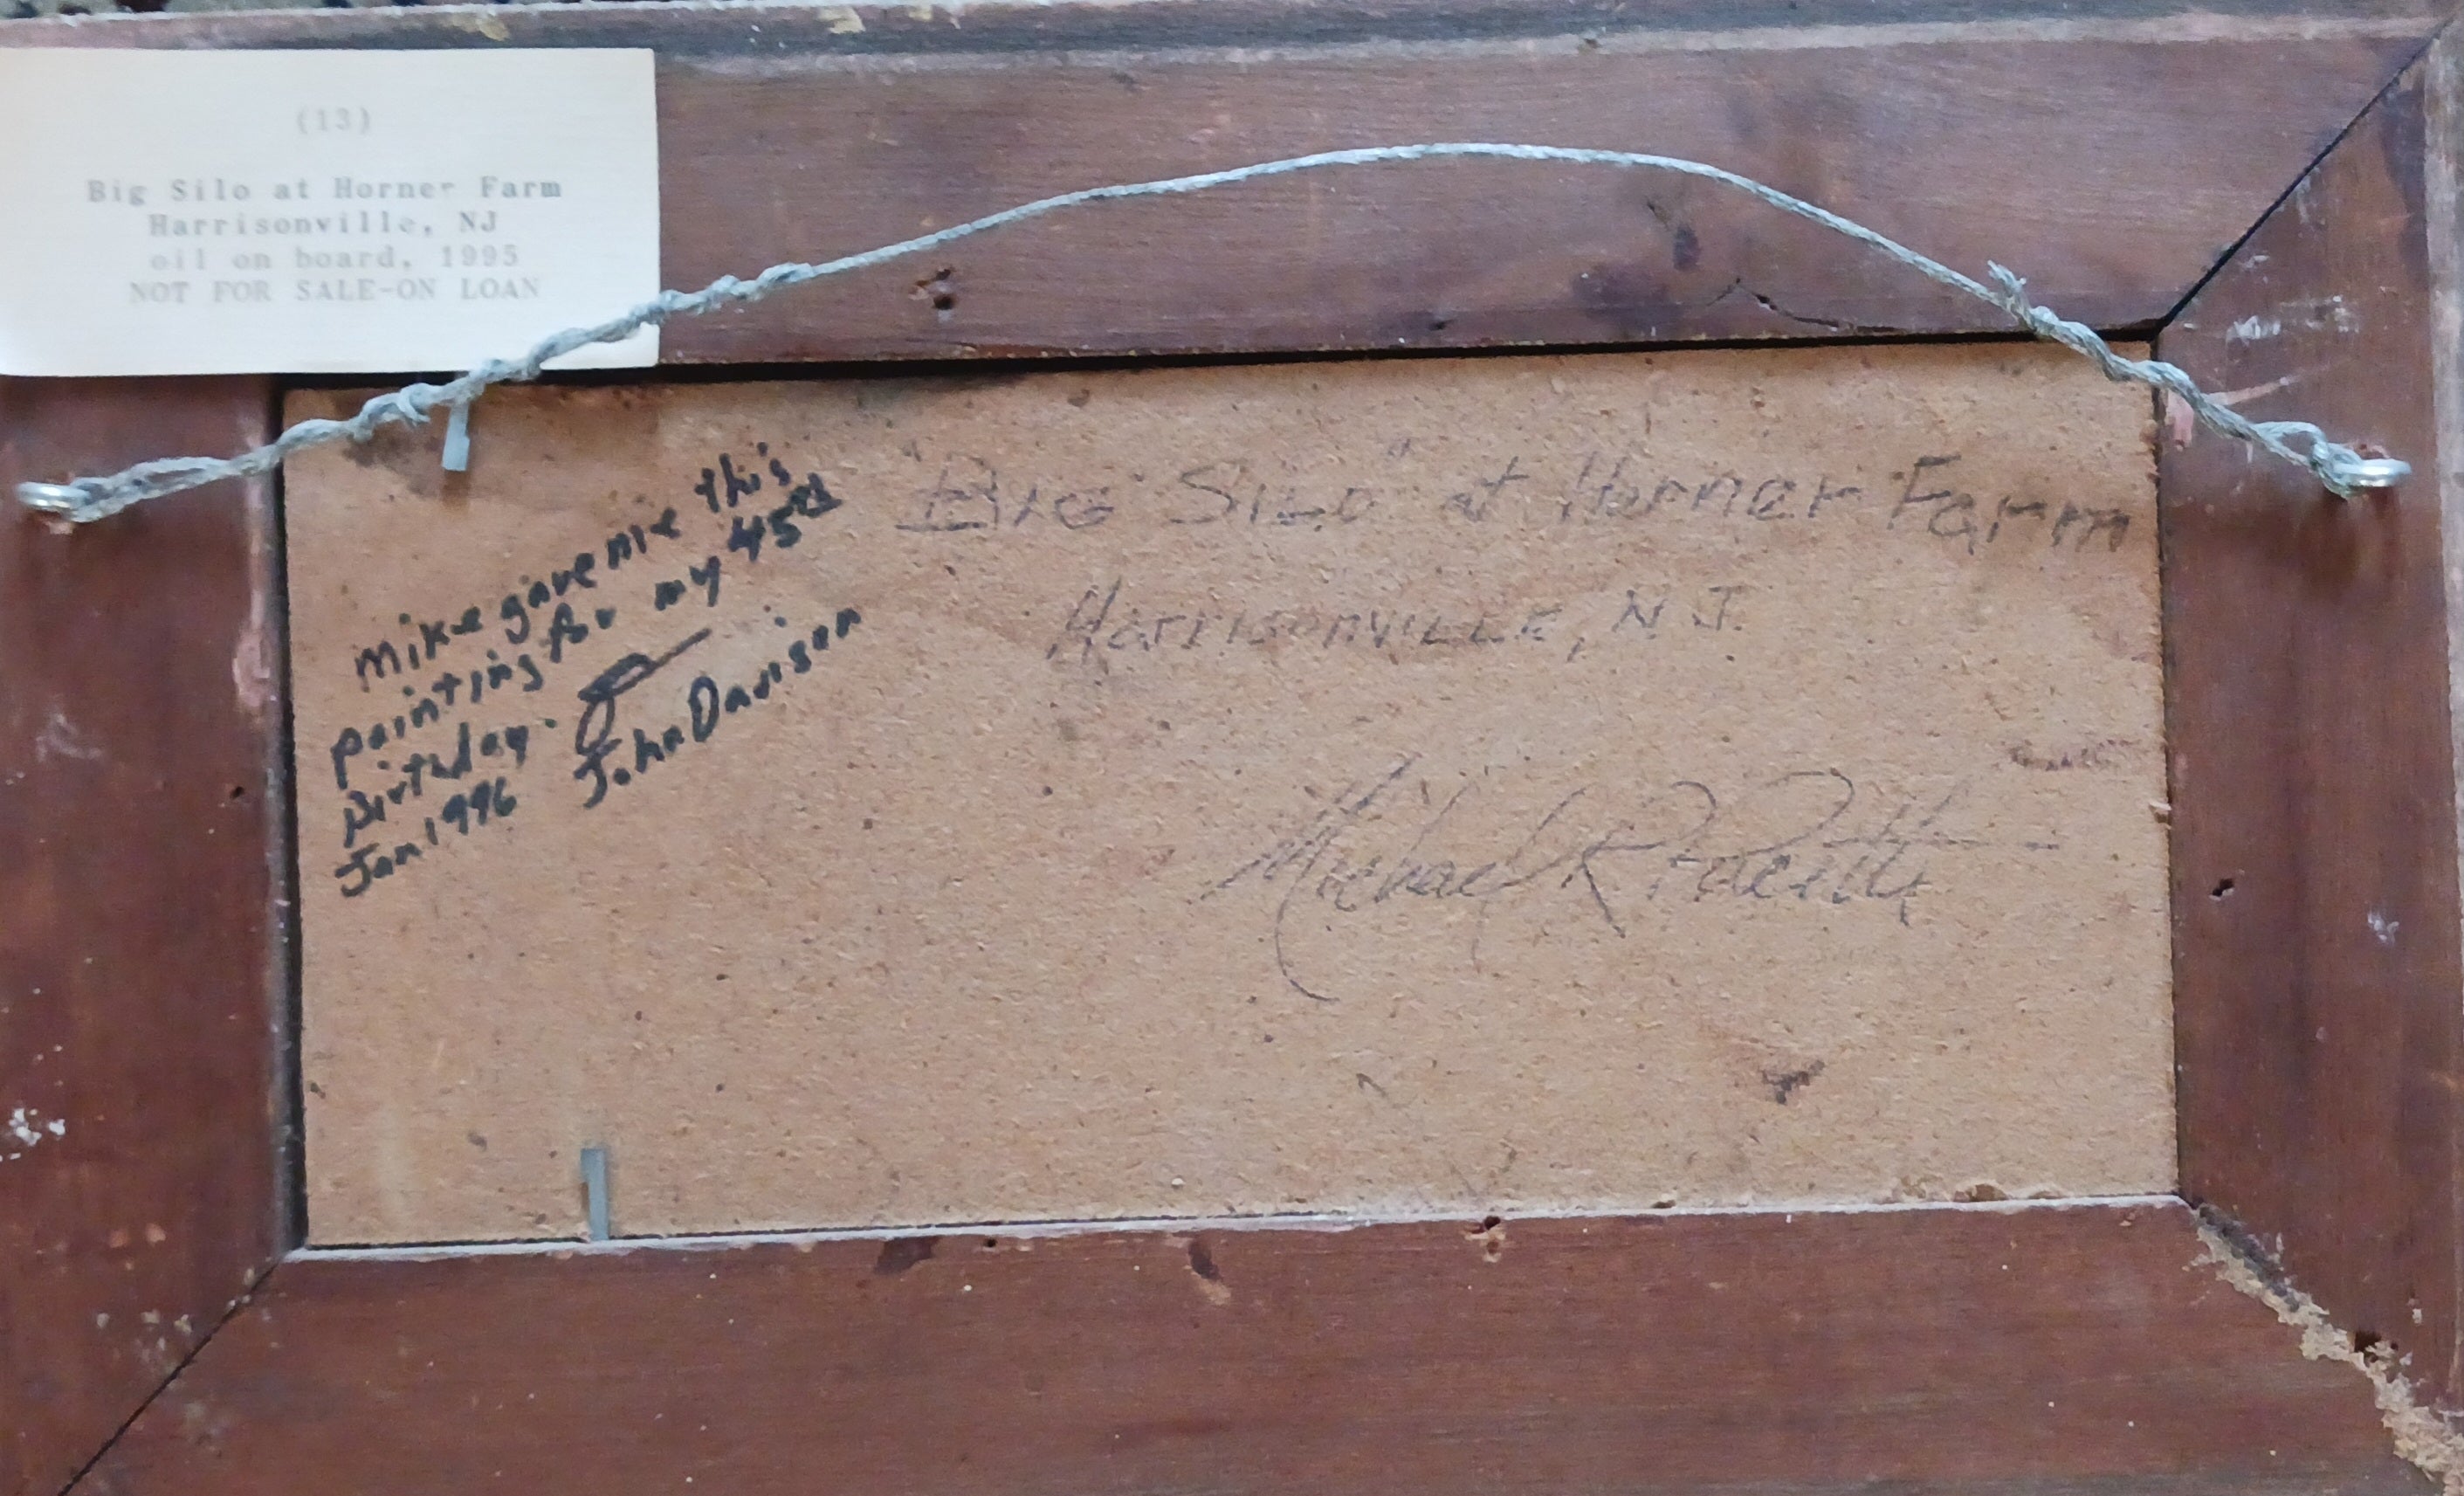 (13)
Big Silo at Horner Farm
Harrisonville, NJ
oil on board, 1995
NOT FOR SALE-ON LOAN
Mike gave me this
painting for my 45th
Birthday.
Jan 1996 John Davison
"BIG SILO" at Horner Farm
HARRISONVILLE, N.J.
Michael R